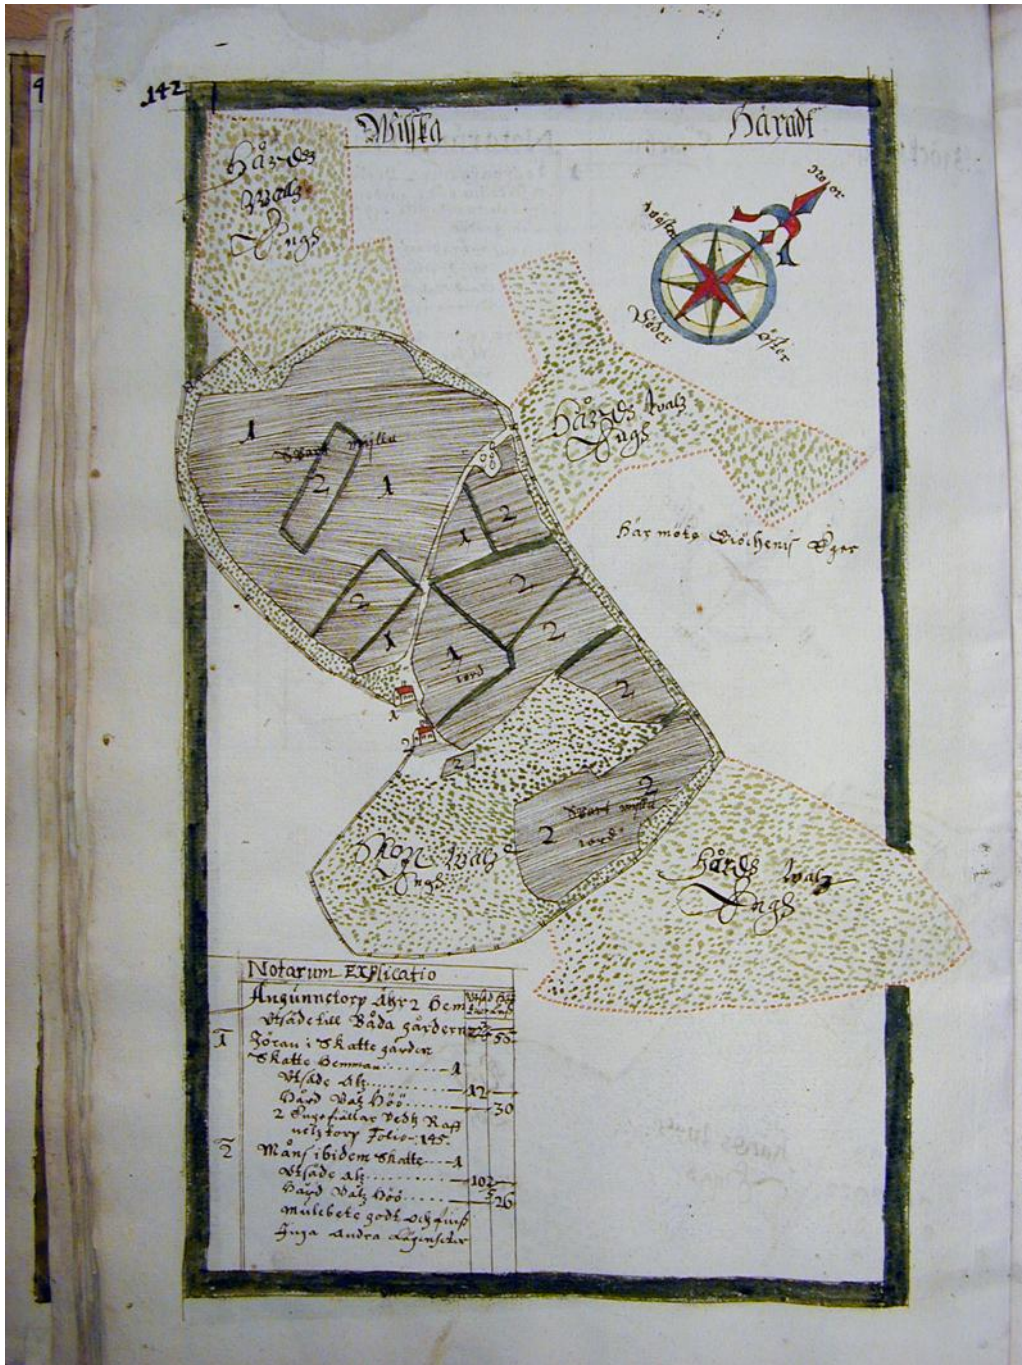 142
Wilska Häradt
Hårdz
Walz
Engh
Norr
Wäster
Söder
Öster
Hårdz walz
Engh
1
Swart mylla
2
1
1
2
2
2
2
1
1
2
iord
2
1
2
2
2
Swart mylla
2
iord
Skog walz
Engh
Hårdz walz
Engh
Här möte Ägor
Notarum Explicatio
Ängünnetorp ähr 2 Hem
Utsäde till Båda gårdern 22 55
1 Jöran i Skattegården
Skatte Hemman 1
Utsäde alz 12
Hård Walz Höö 30
2 Engefiällar vedh Raff
nelztorp Folio 145.
2 Måns ibidem Skatte 1
Utsäde alz 10
Hård Walz Höö 26
Mulebete godt och finß
Inga Andra Lägenheter